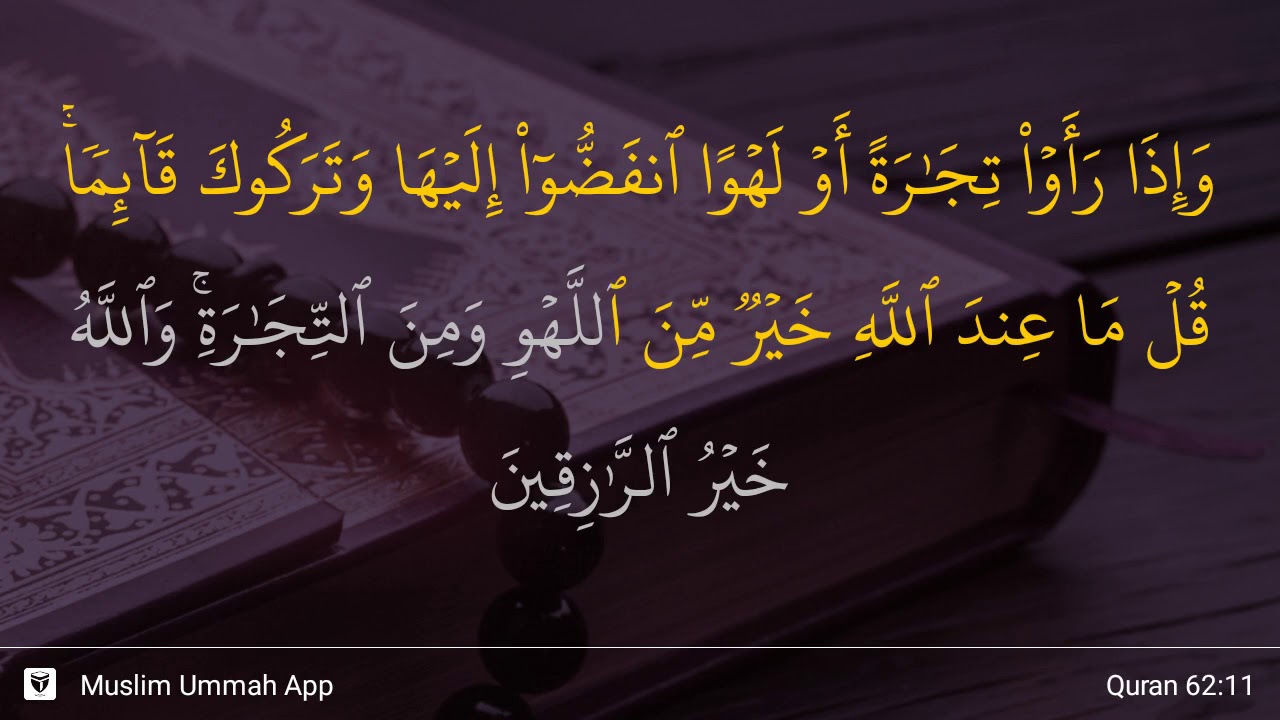 وَإِذَا رَأَوْا۟ تِجَـٰرَةً أَوْ لَهْوًا ٱنفَضُّوٓا۟ إِلَيْهَا وَتَرَكُوكَ قَآئِمًا ۚ
قُلْ مَا عِندَ ٱللَّهِ خَيْرٌ مِّنَ ٱللَّهْوِ وَمِنَ ٱلتِّجَـٰرَةِ ۚ وَٱللَّهُ
خَيْرُ ٱلرَّٰزِقِينَ
Muslim Ummah App
Quran 62:11